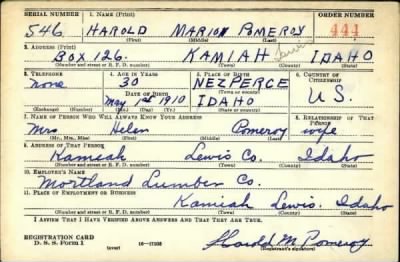 SERIAL NUMBER 1. NAME (Print) ORDER NUMBER
546 HAROLD MARION POMEROY 444
(First) (Middle) (Last)
2. ADDRESS (Print)
BOX 126. KAMIAH Lewis IDAHO
(Number and street or R. F. D. number) (Town) (County) (State)
3. TELEPHONE 4. AGE IN YEARS 5. PLACE OF BIRTH 6. COUNTRY OF CITIZENSHIP
none 30 NEZPERCE
DATE OF BIRTH (Town or county)
May 1st 1910 IDAHO U.S.
(Exchange) (Number) (Mo.) (Day) (Yr.) (State or country)
7. NAME OF PERSON WHO WILL ALWAYS KNOW YOUR ADDRESS 8. RELATIONSHIP OF THAT PERSON
Mrs Helen Pomeroy wife
(Mr., Mrs., Miss) (First) (Middle) (Last)
9. ADDRESS OF THAT PERSON
Kamiah Lewis Co. Idaho
(Number and street or R. F. D. number) (Town) (County) (State)
10. EMPLOYER'S NAME
Mortland Lumber Co.
11. PLACE OF EMPLOYMENT OR BUSINESS
Kamiah Lewis. Idaho
(Number and street or R. F. D. number) (Town) (County) (State)
I AFFIRM THAT I HAVE VERIFIED ABOVE ANSWERS AND THAT THEY ARE TRUE.
REGISTRATION CARD
D. S. S. Form 1 16-17105 Harold M. Pomeroy
(Registrant's signature)